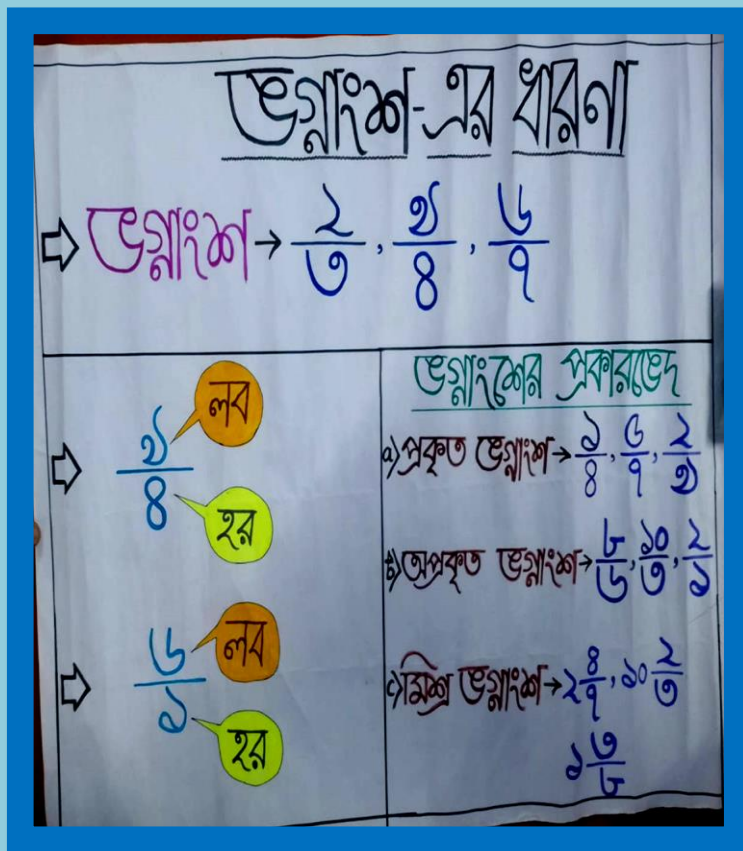 ভগ্নাংশ-এর ধারণা
⇨ ভগ্নাংশ → ২/৩, ৫/৪, ৬/৭
⇨ ৫/৪
লব
হর
⇨ ৬/১
লব
হর
ভগ্নাংশের প্রকারভেদ
a) প্রকৃত ভগ্নাংশ → ১/৪, ৬/৭, ২/৫
b) অপ্রকৃত ভগ্নাংশ → ৮/৬, ১০/৩, ২/১
c) মিশ্র ভগ্নাংশ → ২ ৪/৭, ১০ ২/৩
১ ৩/৮